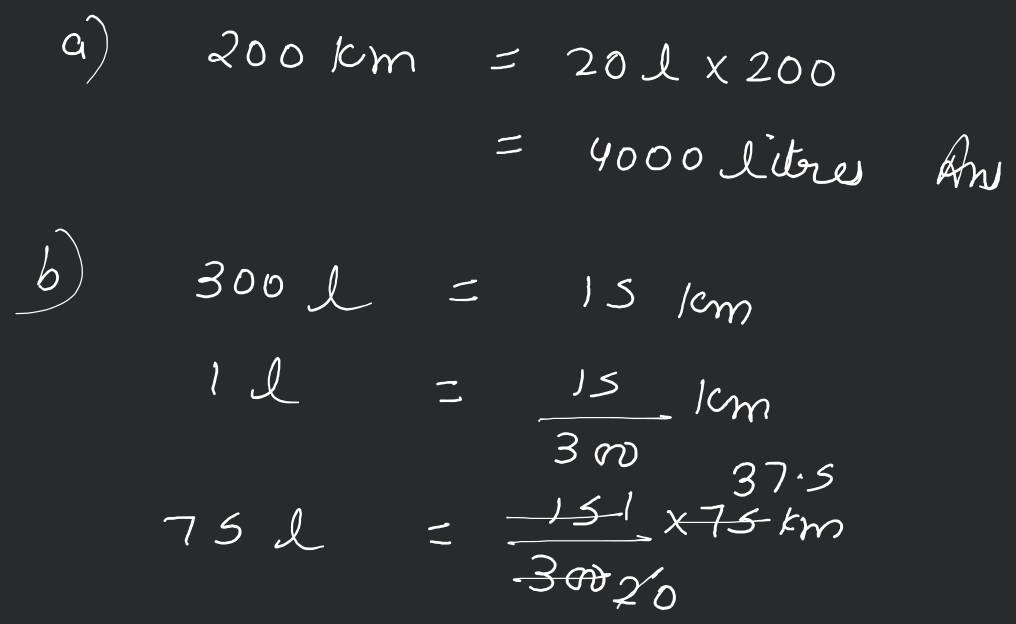 a) 200 km = 20 l x 200
= 4000 litres Ans
b) 300 l = 15 km
1 l = 15/300 km
37.5
75 l = 15 1/300 20 x 75 km